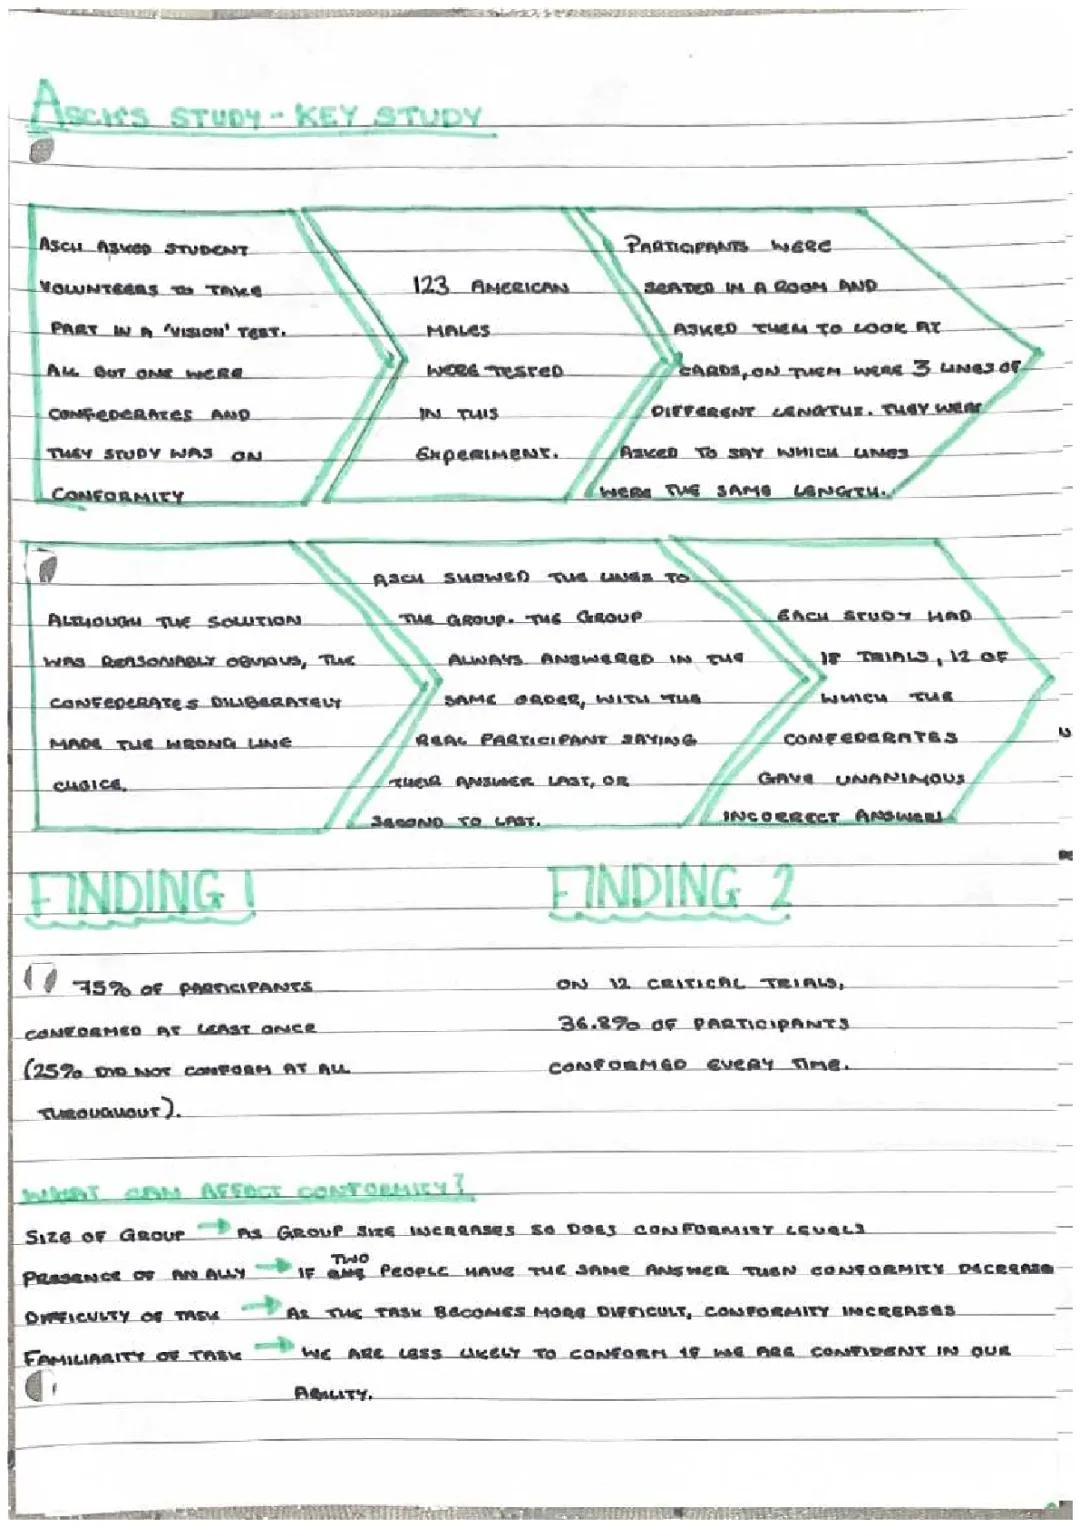 ASCH'S STUDY - KEY STUDY
ASCH ASKED STUDENT
VOLUNTEERS TO TAKE
PART IN A 'VISION' TEST.
ALL BUT ONE WERE
CONFEDERATES AND
THEY STUDY WAS ON
CONFORMITY
123 AMERICAN
MALES
WERE TESTED
IN THIS
EXPERIMENT.
PARTICIPANTS WERE
SEATED IN A ROOM AND
ASKED THEM TO LOOK AT
CARDS, ON THEM WERE 3 LINES OF
DIFFERENT LENGTHS. THEY WERE
ASKED TO SAY WHICH LINES
WERE THE SAME LENGTH.
ALTHOUGH THE SOLUTION
WAS REASONABLY OBVIOUS, THE
CONFEDERATES DILIBERATELY
MADE THE WRONG LINE
CHOICE.
ASCH SHOWED THE LINES TO
THE GROUP. THE GROUP
ALWAYS ANSWERED IN THE
SAME ORDER, WITH THE
REAL PARTICIPANT SAYING
THEIR ANSWER LAST, OR
SECOND TO LAST.
EACH STUDY HAD
TRIALS, 12 OF
WHICH THE
CONFEDERATES
GAVE UNANIMOUS
INCORRECT
FINDING 1
75% OF PARTICIPANTS
CONFORMED AT LEAST ONCE
(25% DID NOT CONFORM AT ALL
THROUGHOUT).
FINDING 2
ON 12 CRITICAL TRIALS,
36.8% OF PARTICIPANTS
CONFORMED EVERY TIME.
WHAT CAN AFFECT CONFORMITY?
SIZE OF GROUP → AS GROUP SIZE INCREASES SO DOES CONFORMITY LEVELS
PRESENCE OF AN ALLY → IF TWO PEOPLE HAVE THE SAME ANSWER THEN CONFORMITY DECREASE
DIFFICULTY OF TASK → AS THE TASK BECOMES MORE DIFFICULT, CONFORMITY INCREASES
FAMILIARITY OF TASK → WE ARE LESS LIKELY TO CONFORM IF WE ARE CONFIDENT IN OUR
ABILITY.